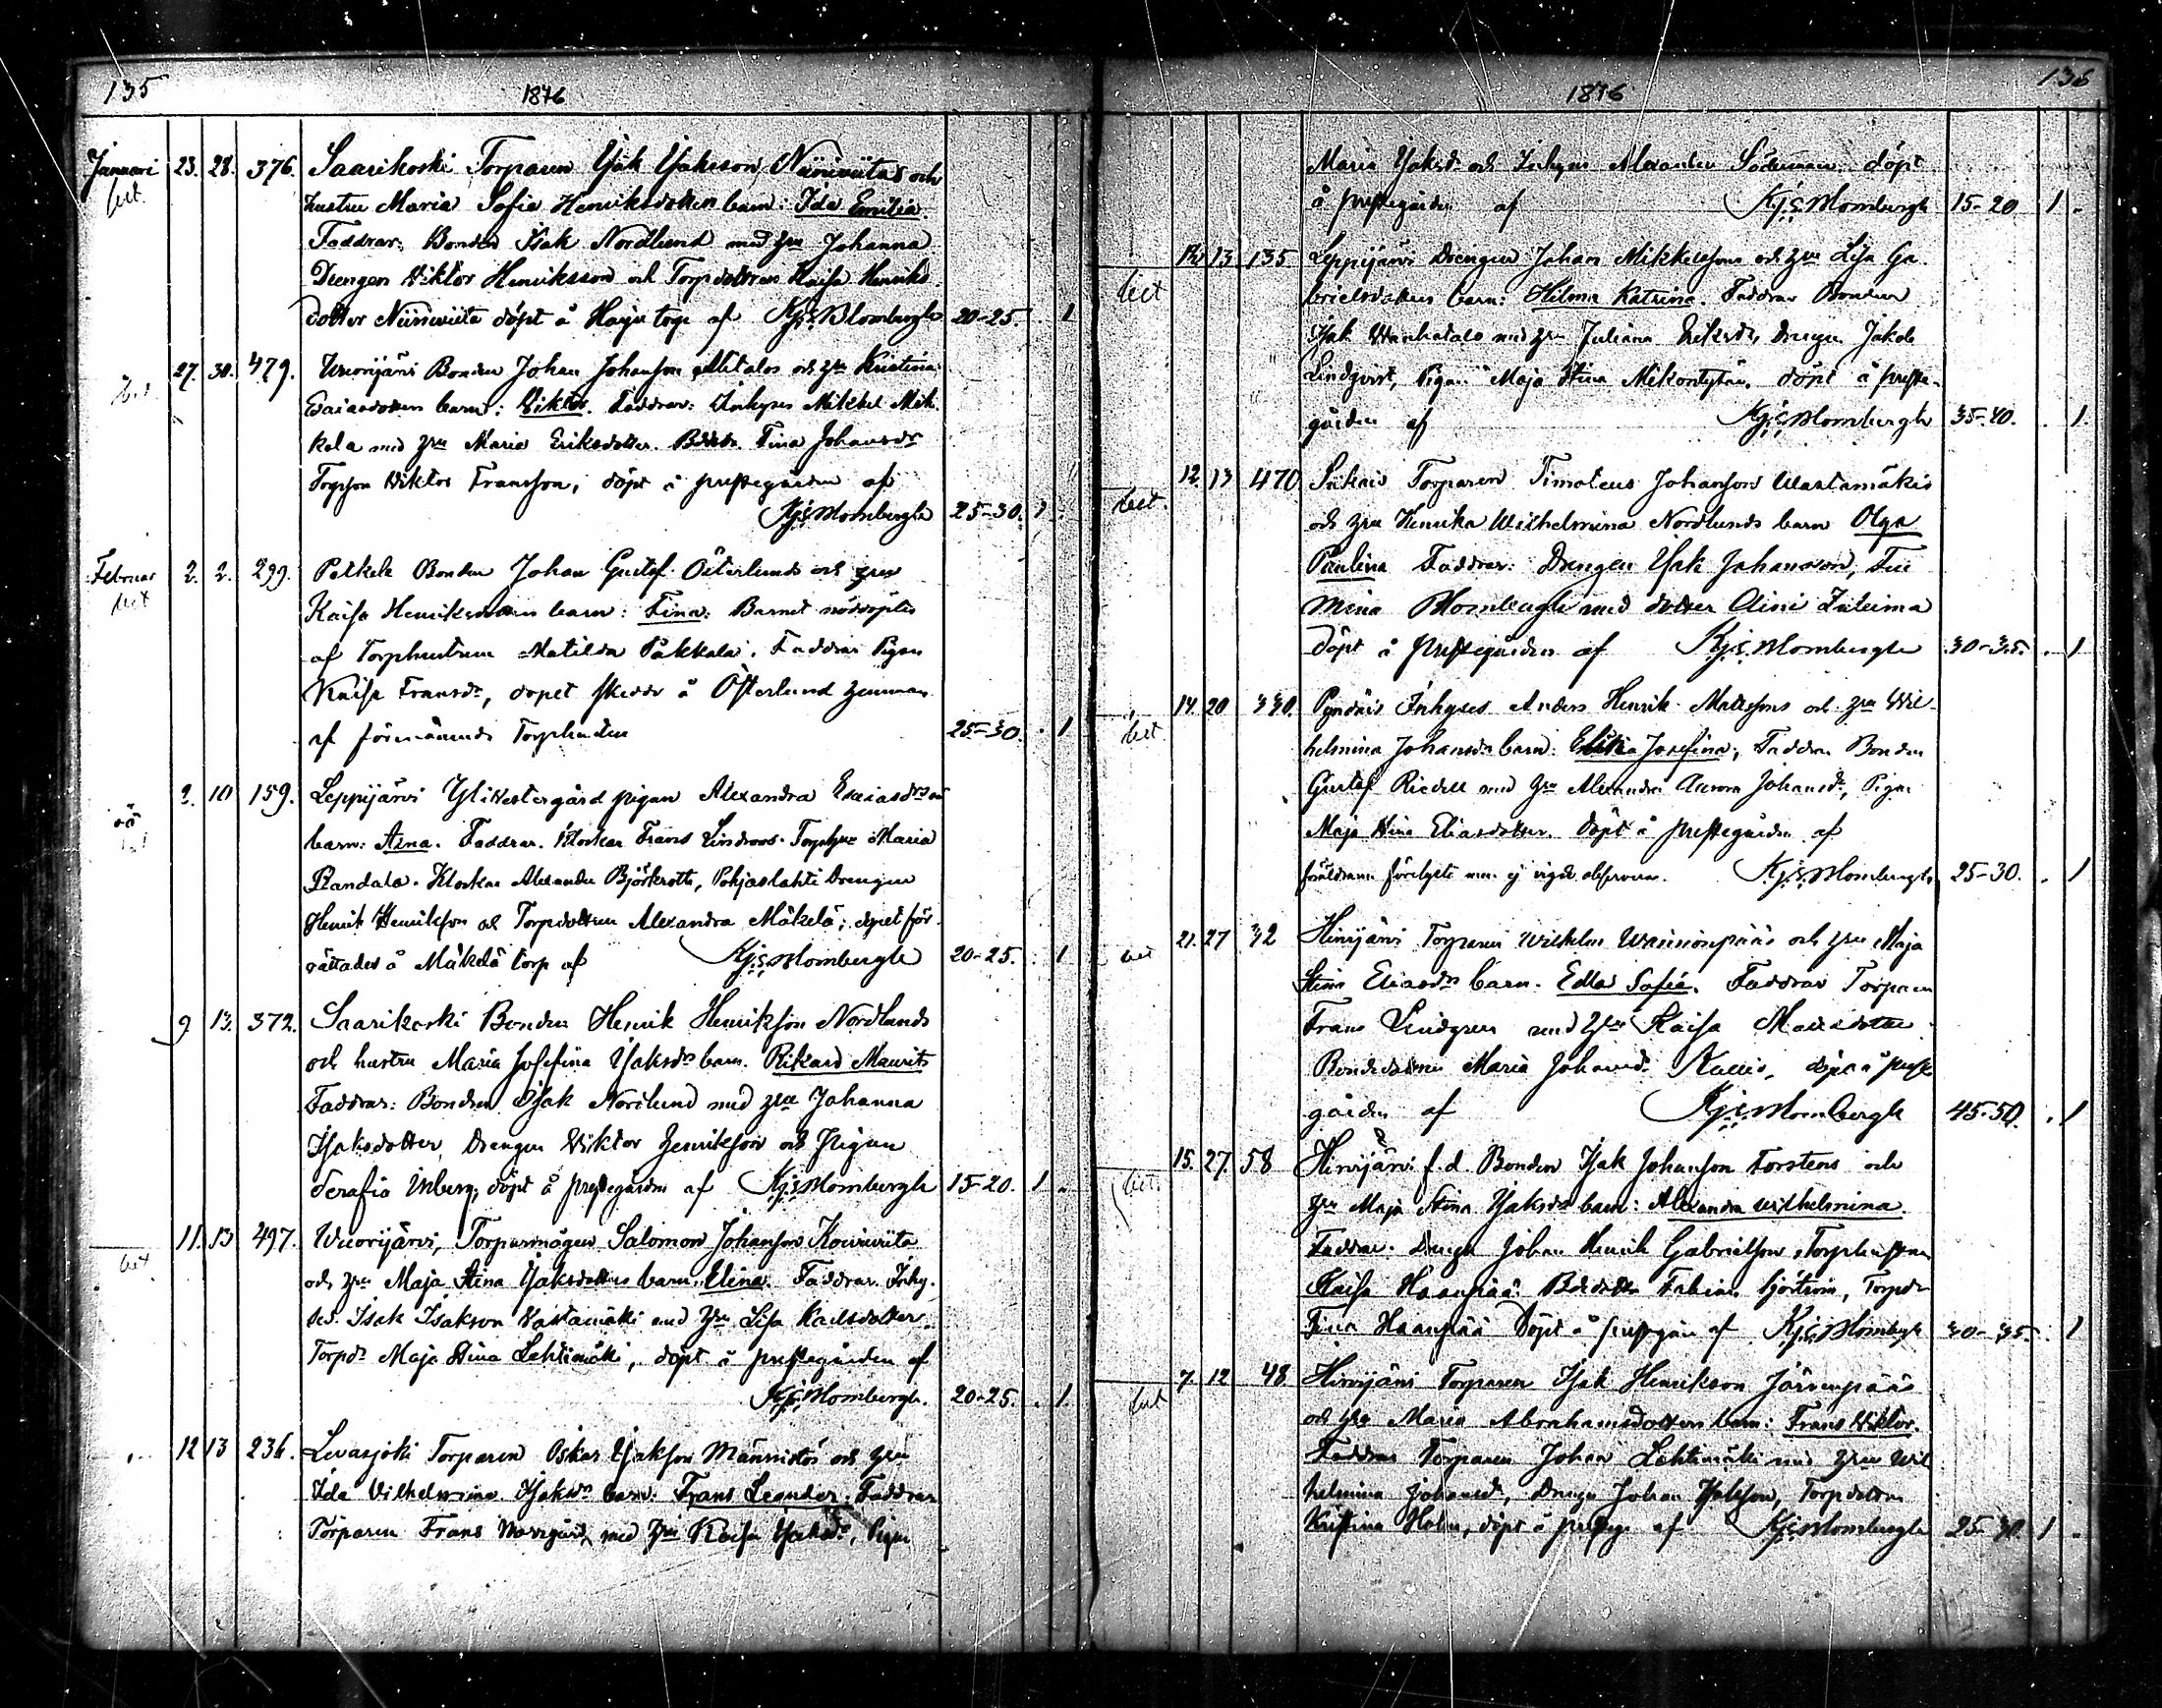 135
1876
Januari 23. 28. 376. Saarikoski Torparen Isak Isaksson Niiniviitas och
bet. hustru Maria Sofia Henriksdotters barn: Ida Emilia.
Faddrar: Bonden Isak Nordlund med hru Johanna
Drengen Viktor Henriksson och Torpdottren Kaisa Henriks
dotter Niiniviita döpt å Harju torp af Kjs: Blombergh 20-25. 1
27. 30. 479. Wuorijärvi Bonden Johan Johansson Alitalos och hru Kristina
bet. Esaiasdotters barn: Viktor. Faddrar: Inhyses Mikkel Mik-
kola med hru Maria Eriksdotter. Bddtr. Fina Johansdr
Torpson Viktor Fransson, döpt å prestegården af
Kjs: Blombergh 25-30. 1
Februar 2. 2. 299. Bonden Johan Gustaf Österlunds och hru
bet Kaisa Henriksdotters barn: Fina. Barnet nöddöptes
af Torphustrun Matilda Pakkala. Faddrar Pigan
Kaisa Fransdr, dopet skedde å Österlund hemman
af förenämnde Torphustru 25-30. 1
2. 10 159. Leppijärvi Yliwestergård pigan Alexandra Esaiasdrs
oä barn: Aina. Faddrar. Klockar Frans Lindroos. Torphru Maria
Randala. Klockar Alexander Björkroth, Pohjaslahti Drengen
Henrik Henriksson och Torpdottren Alexandra Mäkelä; dopet för-
rättades å Mäkelä torp af Kjs: Blombergh 20-25. 1
9 13. 372. Saarikoski Bonden Henrik Henriksson Nordlunds
och hustru Maria Josefina Isaksdrs barn. Rikard Maurits
Faddrar: Bonden Isak Nordlund med hru Johanna
Isaksdotter, Drengen Viktor Henriksson och Pigan
Serafia Inberg; döpt å prestegården af Kjs: Blombergh 15-20. 1
11. 13 497. Wuorijärvi, Torparmågen Salomon Johansson Koiviviita
bet och hru Maja Stina Isaksdotters barn. Elina. Faddrar. Inhy-
ses. Isak Isakson Kastamäki med hru Lisa Karlsdotter.
Torpdr Maja Stina Lehtimäki, döpt å prestegården af
Kjs: Blombergh. 20-25. 1.
12 13 236. Levasjoki Torparen Oskar Isaksson Männistös och hru
Ida Vilhelmina Isaksdrs barn: Frans Leander. Faddrar
Torparen Frans med hru Kaisa Isaksdr, Pigan
136
1876
Maria Isaksdr och Inhyses Alexander Söderman döpt
å prestegården af Kjs: Blombergh 15-20 1
13 135 Leppijärvi Drengen Johan Mikkelssons och hru Lisa Ga-
bet brielsdotters barn: Hilma Katrina. Faddrar Bonden
Isak Wanhatalo med hru Juliana Eriksdr, Drengen Jakob
Lindqvist, Pigan Maja Stina döpt å preste-
gården af Kjs: Blombergh 35-40. 1.
12 13 470 Torparen Timoteus Johansson Wastamäkis
bet. och hru Henrika Wilhelmina Nordlunds barn Olga
Paulina Faddrar: Drengen Isak Johansson,
Mina Blombergh med dotter Aini
döpt å prestegården af Kjs: Blombergh 30-35. 1
14. 20 330. Inhyses Anders Henrik Mattssons och hru Wil-
bet helmina Johansdrs barn: Josefina; Faddrar Bonden
Gustaf Riedell med hru Alexandra Aurora Johansdr, Pigan
Maja Stina Eliasdotter. Döpt å prestegården af
föräldrarne förelysta men ej vigde Kjs: Blombergh 25-30. 1
21. 27 32 Hirvijärvi Torparen Wilhelm Wainionpääs och hru Maja
bet Stina Eliasdrs barn. Edla Sofia. Faddrar Torparen
Frans Lindgren med hru Kaisa
Bondedottren Maria Johansdr döpt å preste
gården af Kjs: Blombergh 45-50. 1
15. 27. 58 Hirvijärvi f.d. Bonden Isak Johansson Torstens och
bet. hru Maja Stina Isaksdrs barn: Alexandra Wilhelmina.
Faddrar. Drengen Johan Henrik Gabrielsson, Torphustrun
Kaisa Haanpää. Bddottr Fabian Sjöström, Torpdr
Fina Haanpää Döpt å prestgår af Kjs: Blombergh 40-45. 1
7. 12 48. Hirvijärvi Torparen Isak Henrikson Järvenpääs
bet och hru Maria Abrahamsdotters barn: Frans Viktor.
Faddrar Torparen Johan Lehtimäki med hru Wil
helmina Johansdr, Drengen Johan Isaksson, Torpdottren
Kristina Holm, döpt å prestg af Kjs: Blombergh 25-30. 1